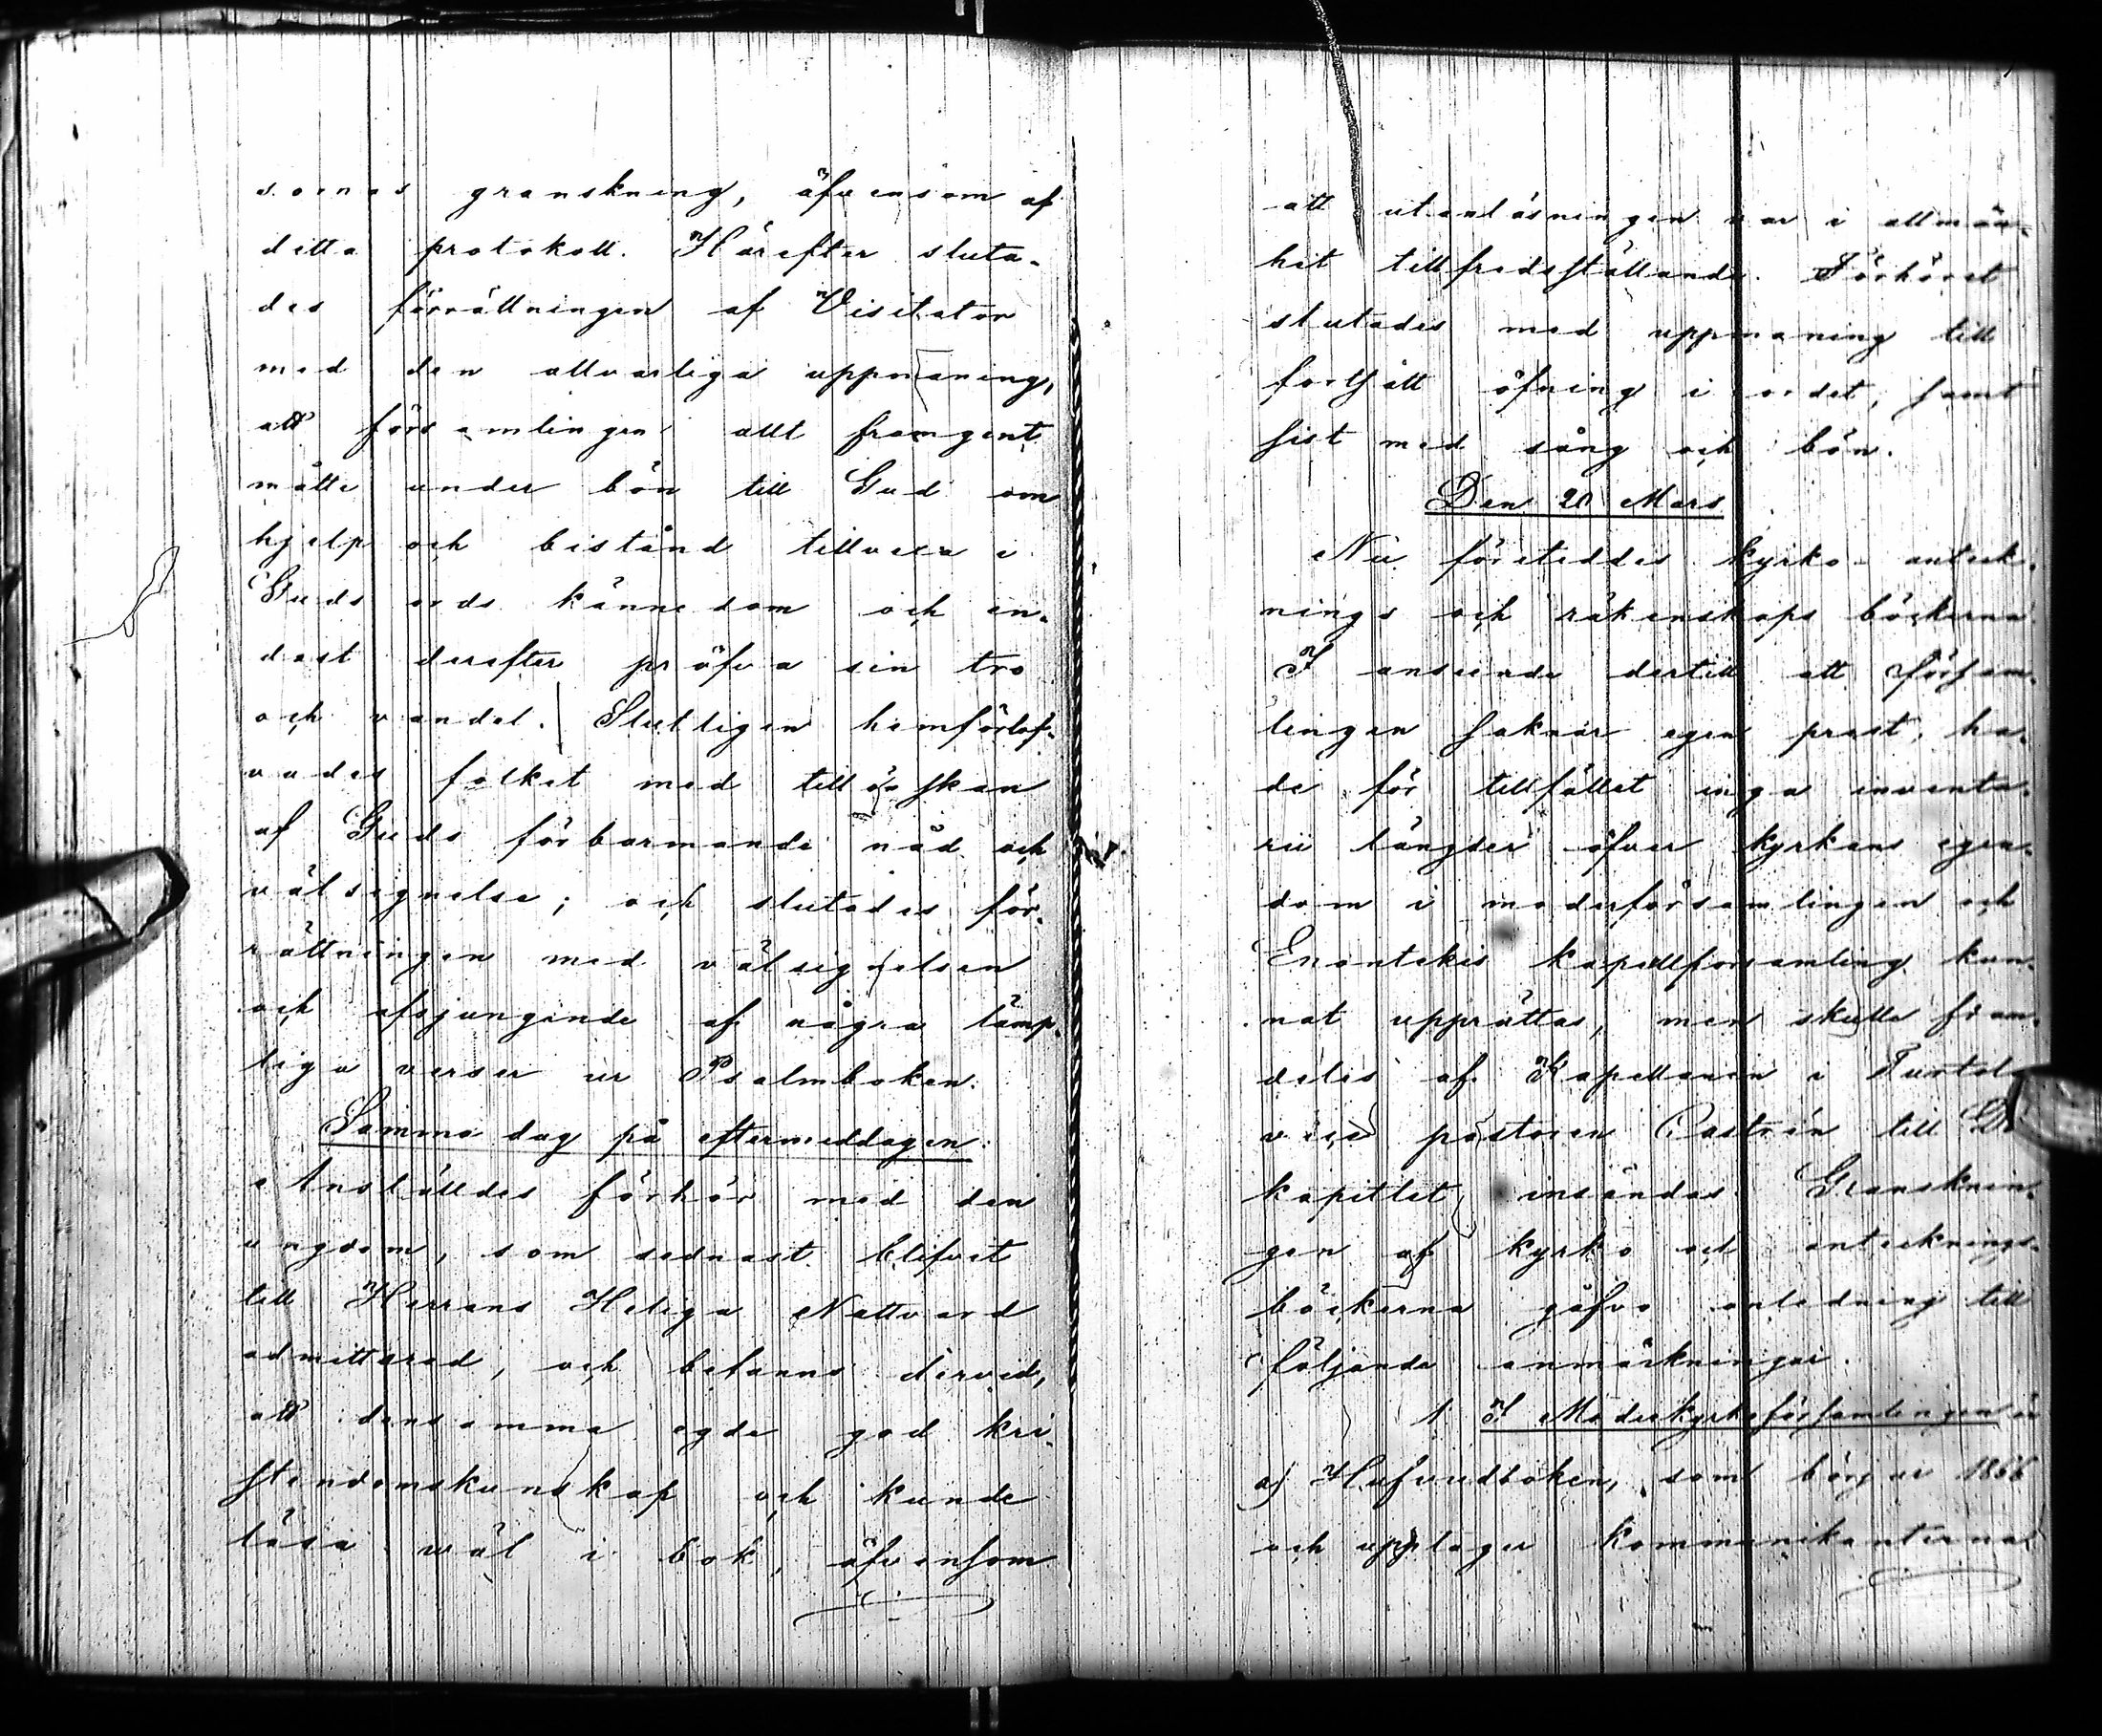 sornas granskning, äfvensom af
detta protokoll. Härefter sluta-
des förrättningen af Visitator
med den allvarliga uppmaning,
att församlingen allt framgent
måtte under bön till Gud om
hjelp och bistånd tillvexa i
Guds ords kännedom och en-
dast derefter pröfva sin tro
och vandel. Slutligen hemförlof-
vades folket med tillönskan
af Guds förbarmande nåd och
välsignelse; och slutades för-
rättningen med välsignelsen
och afsjungande af några lämp-
liga verser ur Psalmboken.
Samma dag på eftermiddagen.
Anställdes förhör med den
ungdom, som sednast blifvit
till Herrans Heliga Nattvard
admitterad, och befanns dervid,
att densamma egde god kri-
stendomskunskap och kunde
läsa väl i bok, äfvensom
att utanläsningen var i allmän-
het tillfredsställande. Förhöret
slutades med uppmaning till
fortsatt öfning i ordet, samt
sist med sång och bön.
Den 20 Mars
Nu företeddes kyrko- anteck-
nings och räkenskaps böckerna
I anseende dertill att försam-
lingen saknar egen prest, ha-
de för tillfället inga inventa-
rii längder öfver kyrkans egen-
dom i moderförsamlingen och
Enontekis kapellförsamling kun-
nat upprättas, men skulle fram-
deles af Kapellanen i Turtola
vice pastoren Castrén till D
kapitlet insändas. Gransknin-
gen af kyrko och antecknings-
böckerna gåfvo anledning till
följande anmärkningar.
1 I Moderkyrkoförsamlingen är
a) Hufvudboken, som börjar 1866
och upptager kommunikanternas